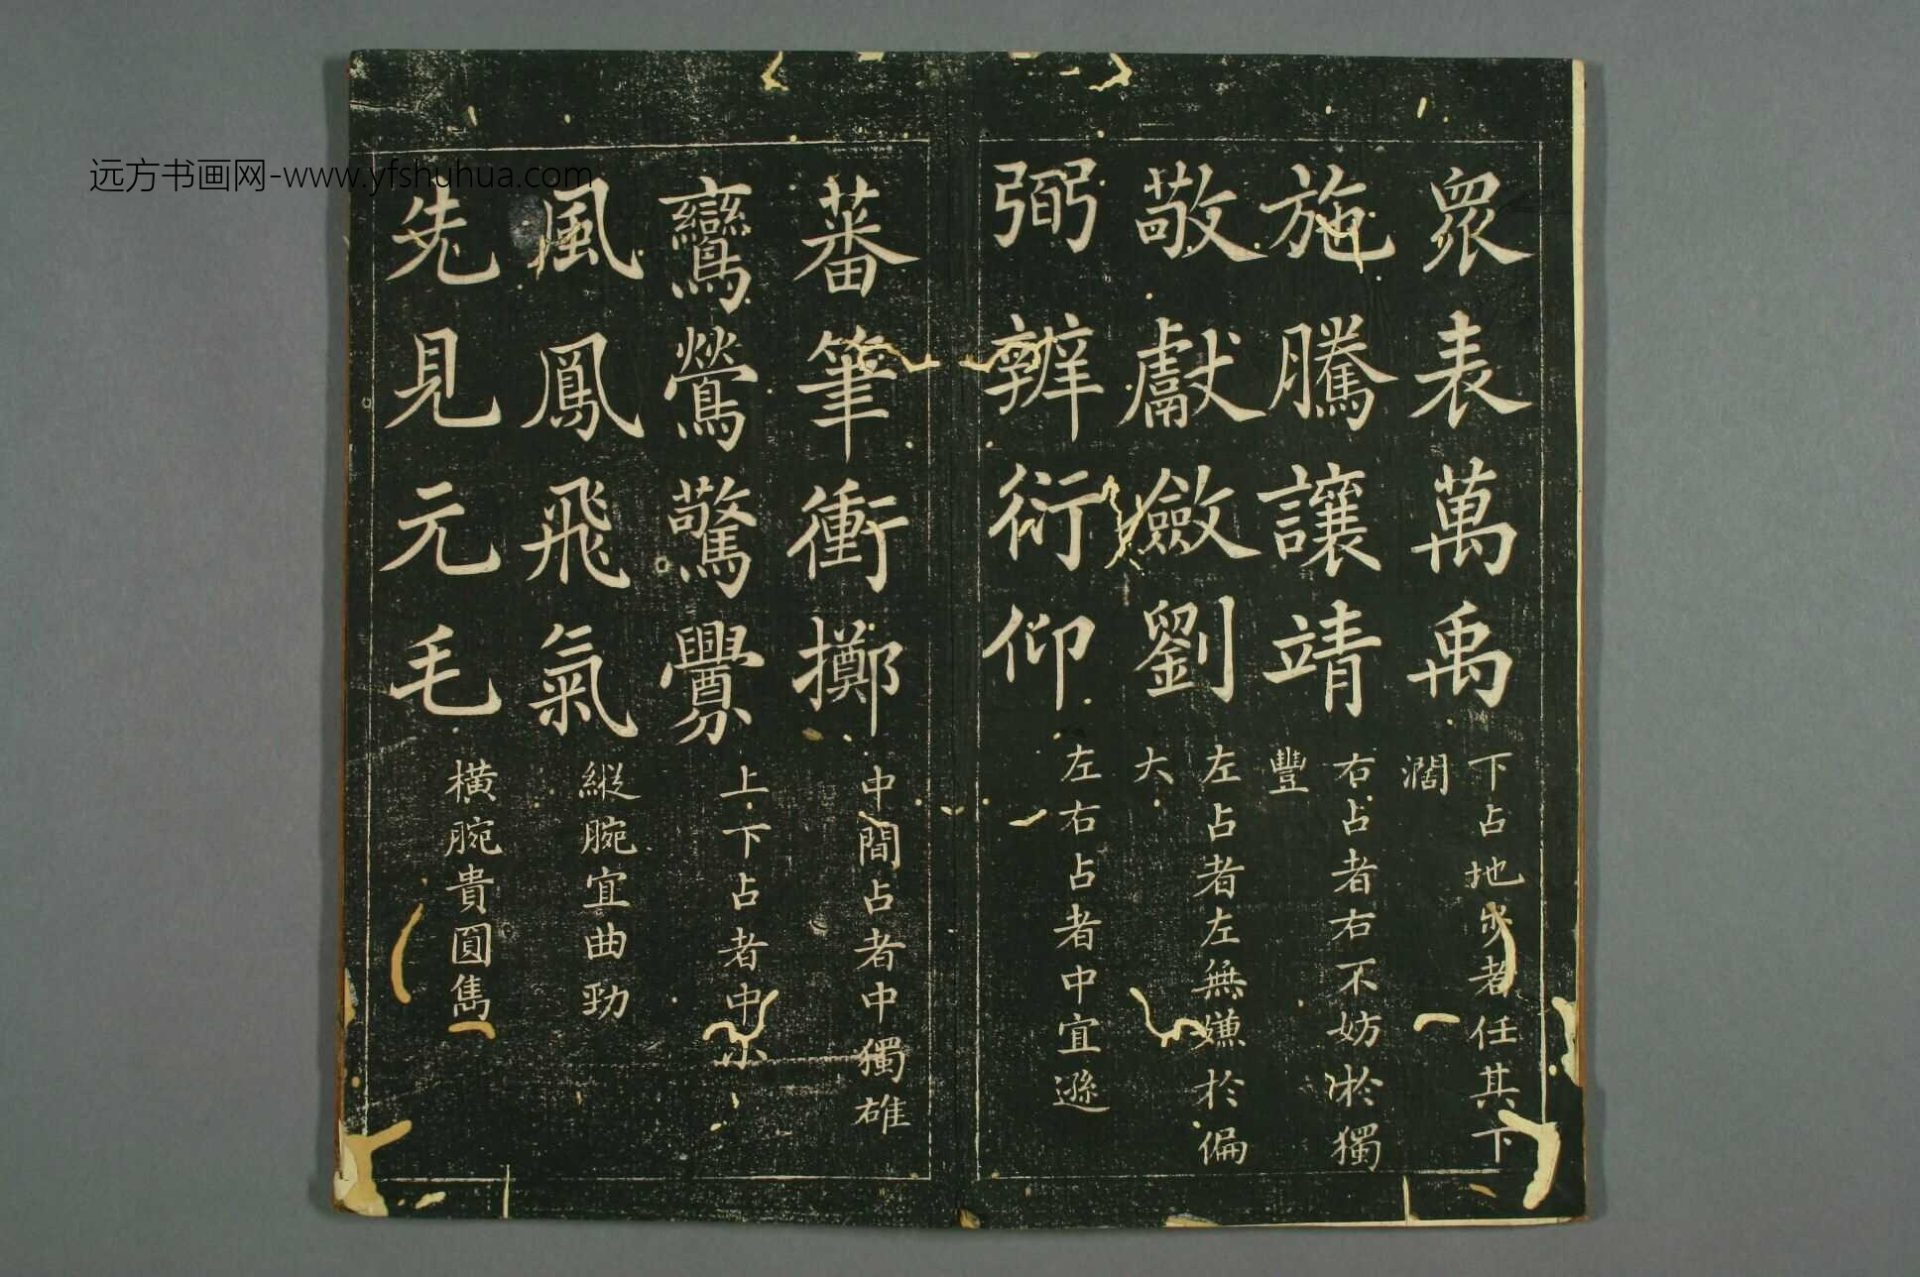 远方书画网-www.yfshuhua.com
眾表萬禹
下占地步者任其下
濶
施騰讓靖
右占者右不妨於獨
豐
敬獻斂劉
左占者左無嫌於偏
大
弼辨衍仰
左右占者中宜遜
蕃筆衝擲
中間占者中獨雄
鸞鶯驚釁
上下占者中小
風鳳飛氣
縱腕宜曲勁
先見元毛
橫腕貴圓雋